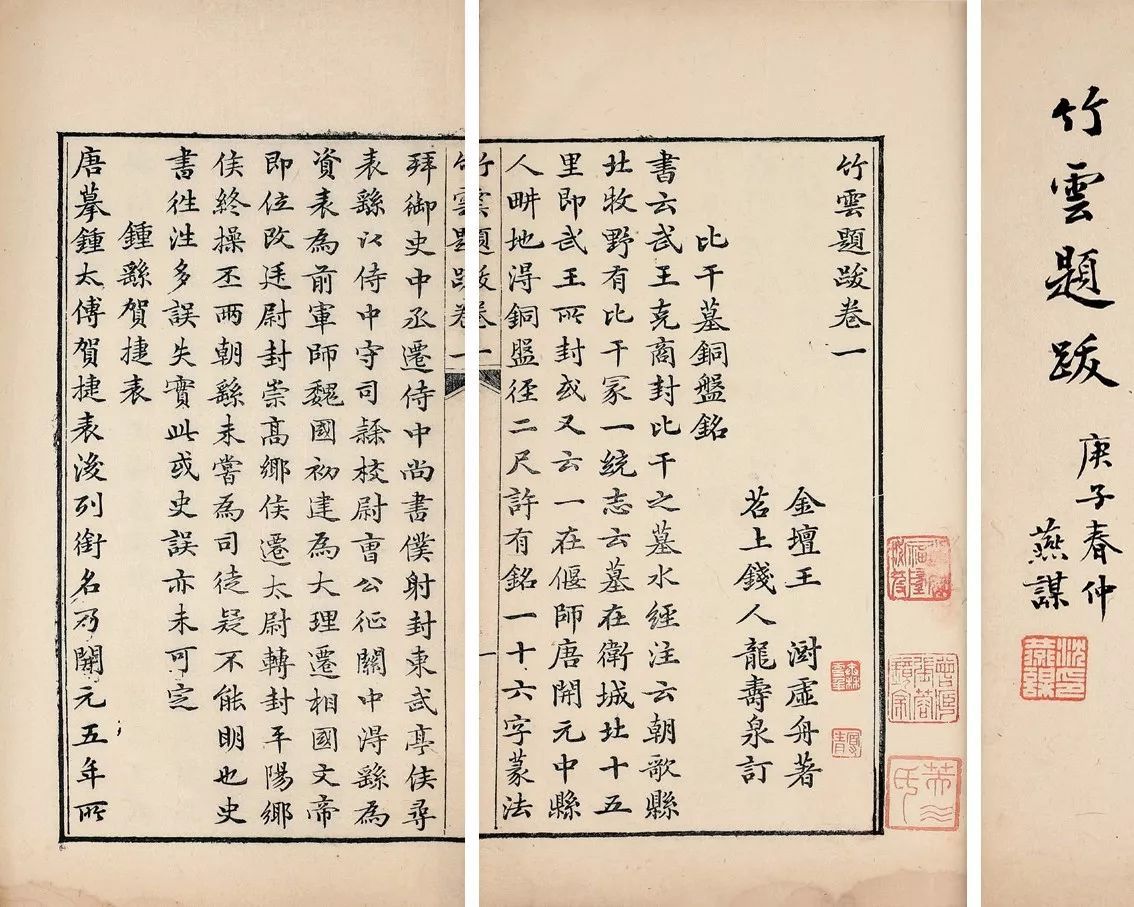 竹雲題跋
庚子春仲
燕謀
竹雲題跋卷一
金壇王 澍虛舟著
苕上錢人龍壽泉訂
比干墓銅盤銘
書云武王克商封比干之墓水經注云朝歌縣
北牧野有比干冢一統志云墓在衛城北十五
里即武王所封或又云一在偃師唐開元中縣
人畊地得銅盤徑二尺許有銘一十六字篆法
竹雲題跋卷一 一
拜御史中丞遷侍中尚書僕射封東武亭侯尋
表繇以侍中守司隸校尉曹公征關中得繇為
資表為前軍師魏國初建為大理遷相國文帝
即位改廷尉封崇高鄉侯遷太尉轉封平陽鄉
侯終操丕兩朝繇未嘗為司徒疑不能明也史
書往往多誤失實此或史誤亦未可定
鍾繇賀捷表
唐摹鍾太傅賀捷表後列銜名乃開元五年所